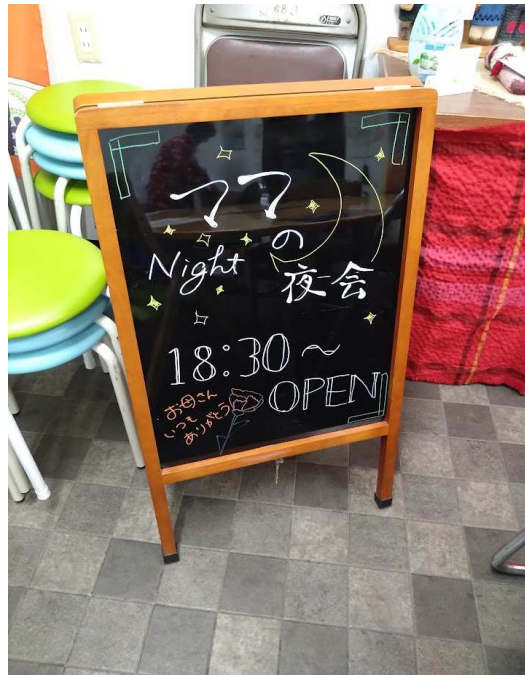 ママ
の
Night
夜会
18:30～
OPEN
お母さん
いつも
ありがとう